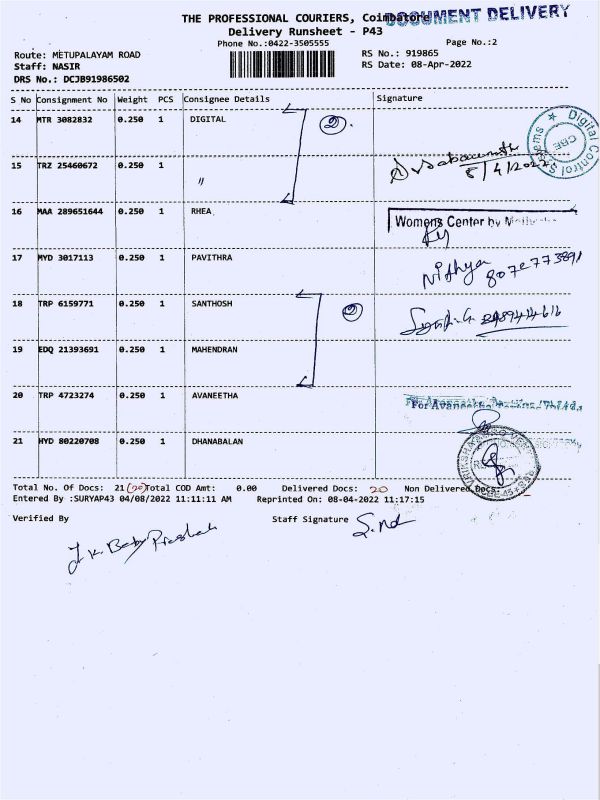 THE PROFESSIONAL COURIERS, Coimbatore
DOCUMENT DELIVERY
Delivery Runsheet - P43
Phone No.:0422-3505555
Page No.:2
Route: METUPALAYAM ROAD
RS No.: 919865
Staff: NASIR
RS Date: 08-Apr-2022
DRS No.: DCJB91986502
S No Consignment No Weight PCS Consignee Details Signature
14 MTR 3082832 0.250 1 DIGITAL
2
Digital Control Systems CBE
15 TRZ 25460672 0.250 1 〃
8/4/2022
16 MAA 289651644 0.250 1 RHEA
Womens Center by
17 MYD 3017113 0.250 1 PAVITHRA
Nithya
18 TRP 6159771 0.250 1 SANTHOSH
2
19 EDQ 21393691 0.250 1 MAHENDRAN
20 TRP 4723274 0.250 1 AVANEETHA
For Avaneetha
21 HYD 80220708 0.250 1 DHANABALAN
Total No. Of Docs: 21 (20) Total COD Amt: 0.00 Delivered Docs: 20 Non Delivered Docs:
Entered By :SURYAP43 04/08/2022 11:11:11 AM Reprinted On: 08-04-2022 11:17:15
Verified By Staff Signature